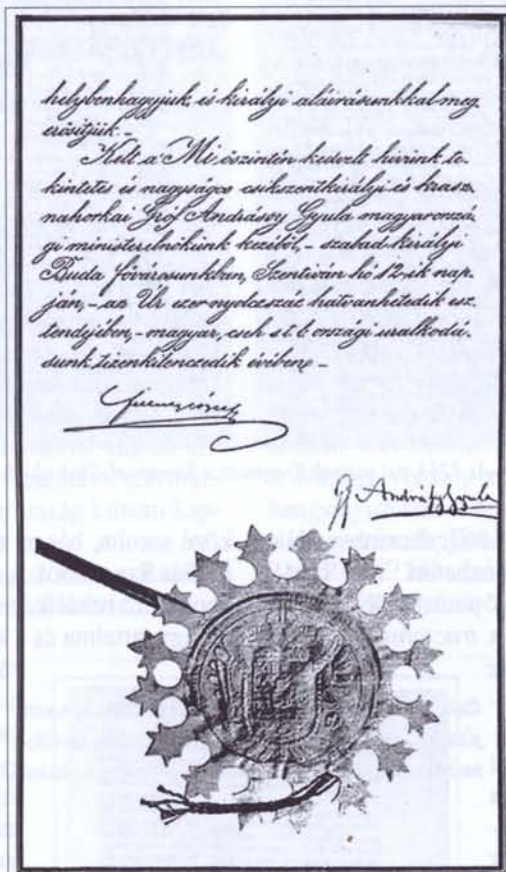 helybenhagyjuk, és királyi aláirásunkkal meg
erősitjük.-
Kelt a Mi őszintén kedvelt hívünk te-
kintetes és nagyságos csikszentkirályi és krasz-
nahorkai Gróf Andrássy Gyula magyarorszá-
gi ministerelnökünk kezéből,- szabad királyi
Buda fővárosunkban, Szentiván hó 12-ik nap-
ján,- az Úr ezernyolczszáz hatvanhetedik esz-
tendejében,- magyar, cseh s t. b. országi uralkodá-
sunk tizenkilenczedik évében.-
Ferencz József
Gf Andrássy Gyula